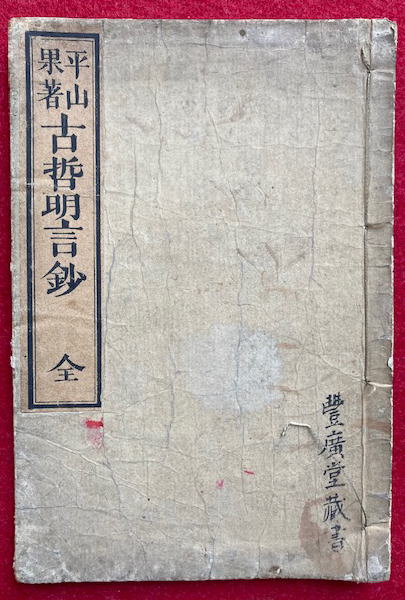 平山
果著
古哲明言鈔
全
豐廣堂藏書